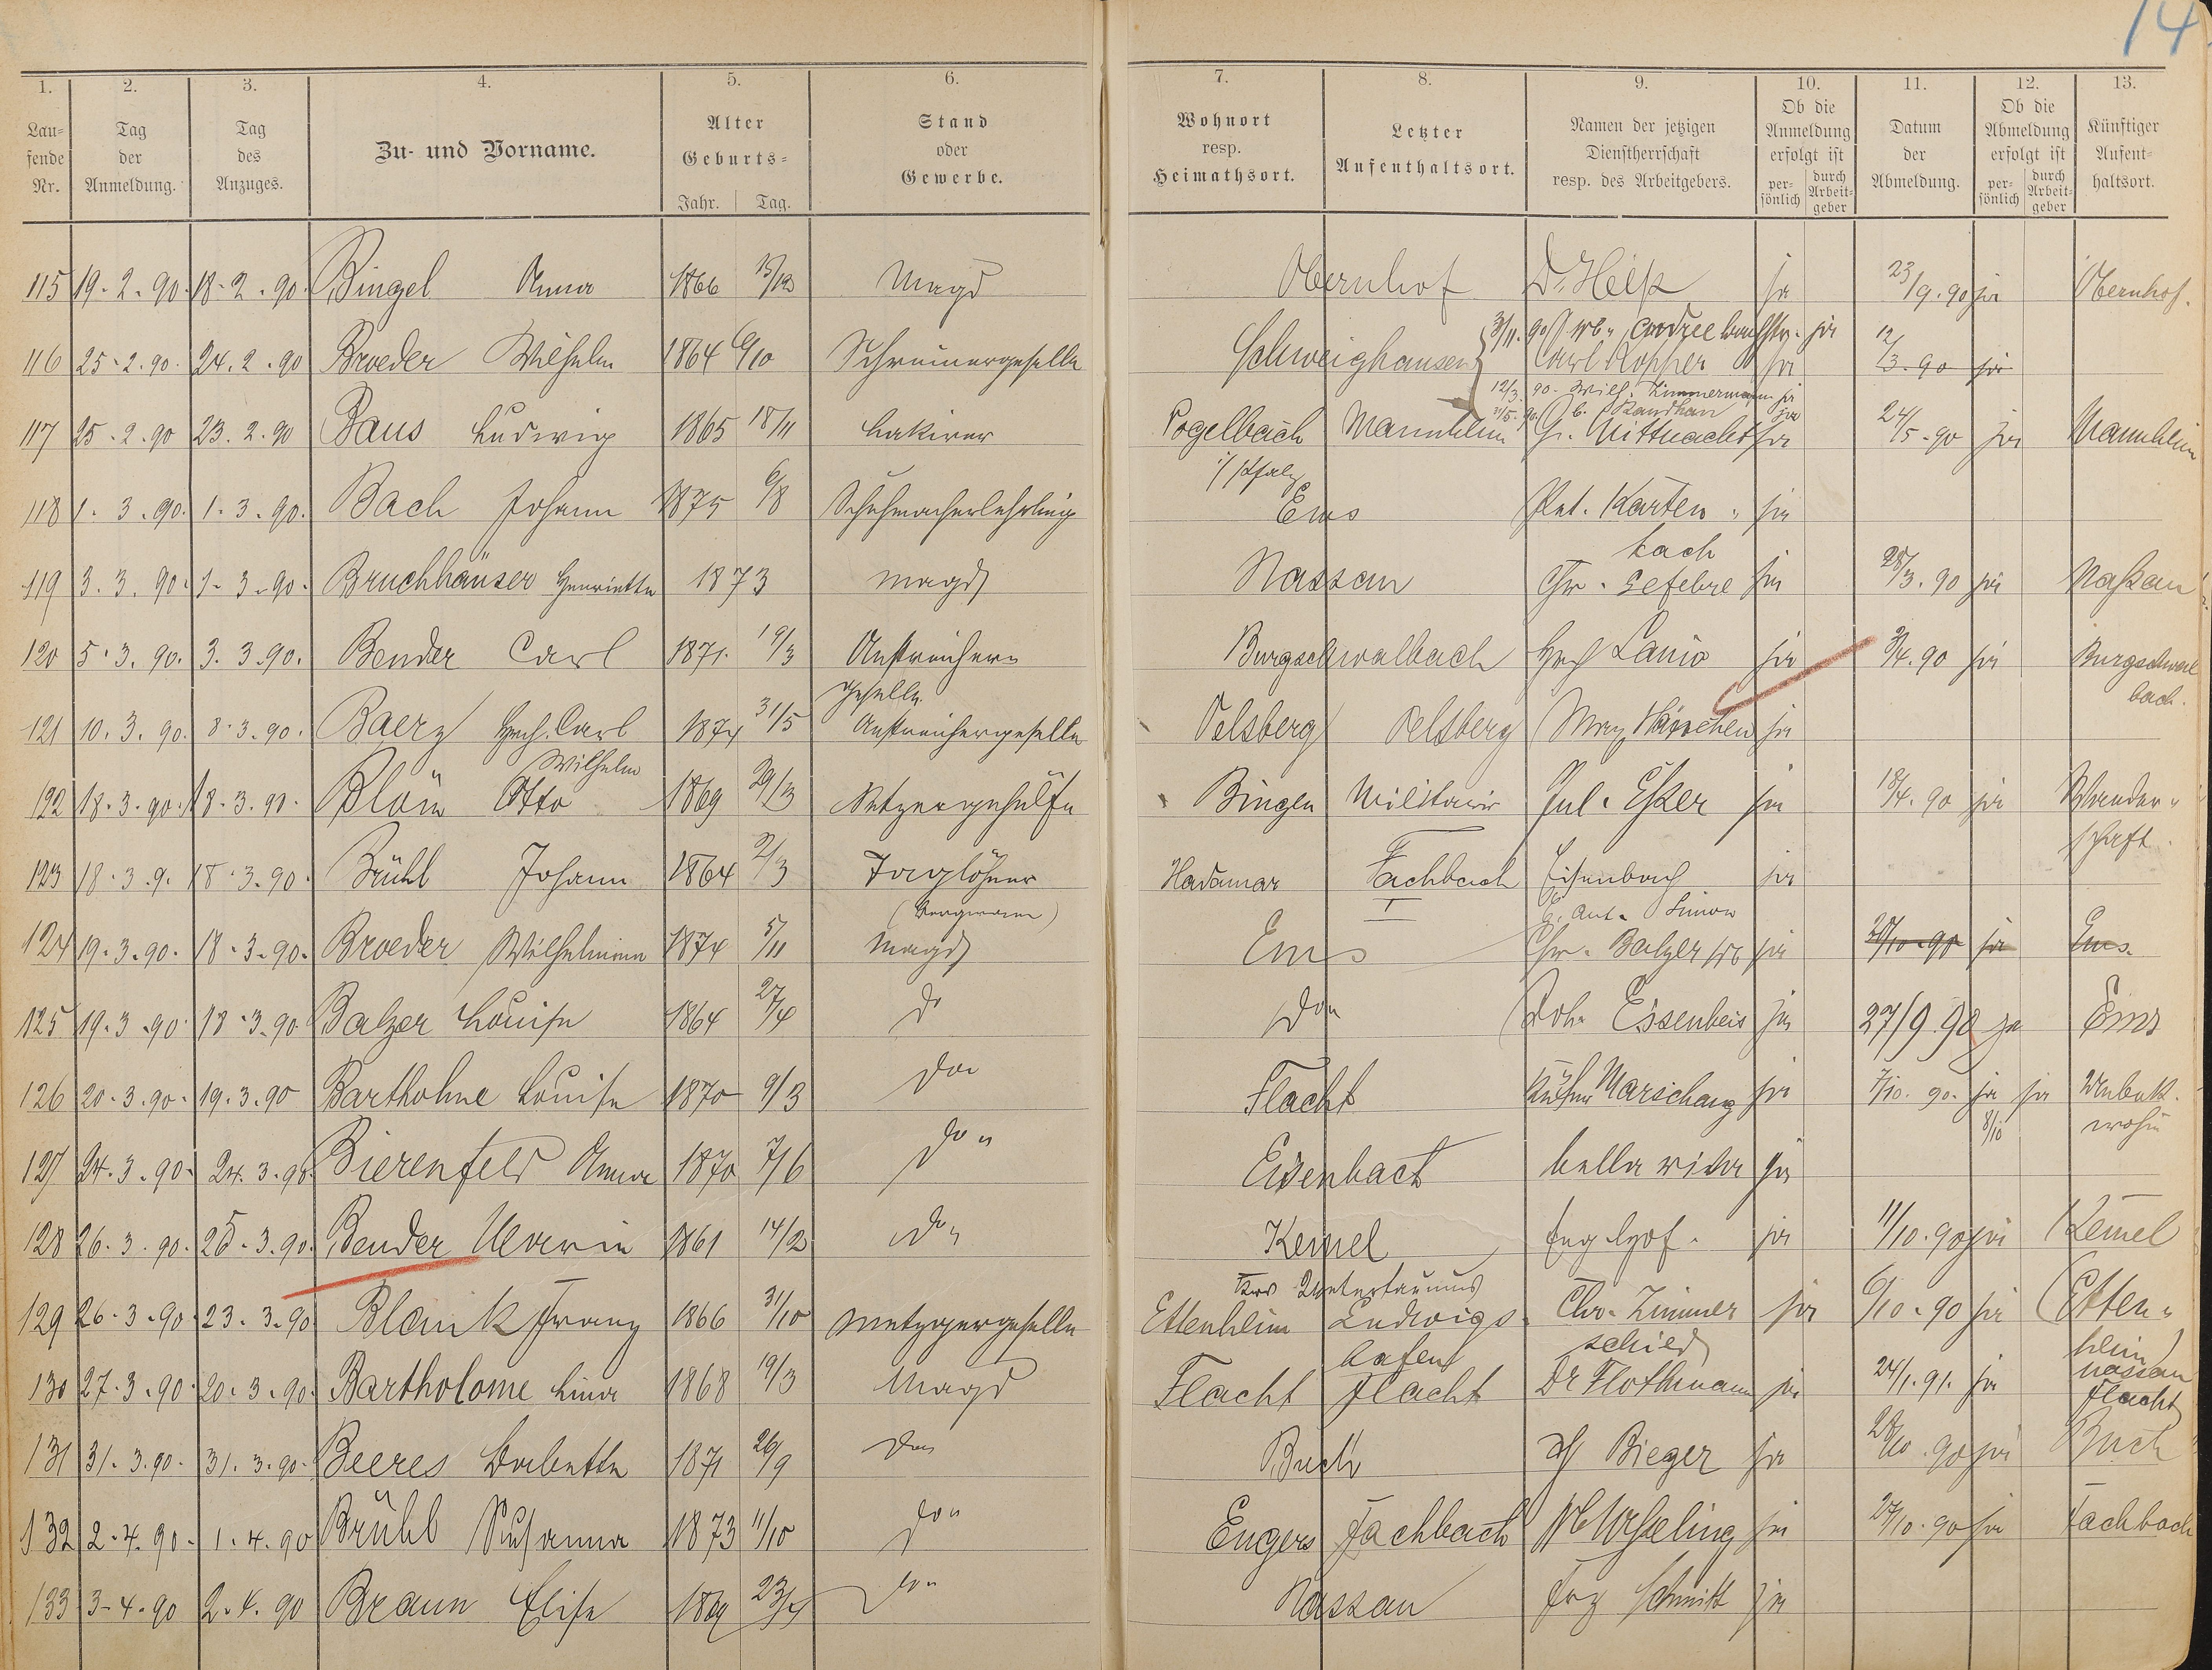 14
1. 2. 3. 4. 5. 6. 7. 8. 9. 10. 11. 12. 13.
Lau=
fende
Nr.
Tag
der
Anmeldung.
Tag
des
Anzuges.
Zu- und Vorname.
Alter
Geburts=
Jahr. Tag.
Stand
oder
Gewerbe.
Wohnort
resp.
Heimathsort.
Letzter
Aufenthaltsort.
Namen der jetzigen
Dienstherrschaft
resp. des Arbeitgebers.
Ob die
Anmeldung
erfolgt ist
per=
sönlich
durch
Arbeit=
geber
Datum
der
Abmeldung.
Ob die
Abmeldung
erfolgt ist
per=
sönlich
durch
Arbeit=
geber
Künftiger
Aufent=
haltsort.
115 19.2.90. 18.2.90. Bingel Anna 1866 Magd Obernhof ja 23/9.90 ja Obernhof.
3/11.90 ja
116 25.2.90. 24.2.90 Broeder Wilhelm 1864 6/10 Schreinergeselle Schweighausen Carl Kopper ja 12/3.90 ja
12/3.90. Wilh. Zimmermann ja
117 25.2.90 23.2.90 Baus Ludwig 1865 18/11 Lakirer Vogelbach Mannheim ja 24/5.90 ja Mannheim
i/Pfalz
118 1.3.90. 1.3.90. Bach Johann 1875 6/8 Schuhmacherlehrling Ems ja
119 3.3.90. 1.3.90. Bruchhäuser Henriette 1873 Magd Nassau Lefebre ja 28/3.90 ja Naßau
120 5.3.90. 3.3.90. Bender Carl 1871. 19/3 Anstreicher=
geselle
Burgschwalbach Lanio ja 3/4.90 ja Burgschwal
bach.
121 10.3.90. 8.3.90. Baerz Carl 1874 31/5 Anstreichergeselle Oelsberg Oelsberg ja
Wilhelm
122 18.3.90. 18.3.90. Otto 1869 Metzgergehülfe Bingen Militair Jul. ja 18/4.90 ja Wander=
schaft.
123 18.3.9. 18.3.90. Brühl Johann 1864 2/3 Taglöhner
(Bergmann)
Hadamar Fachbach Eisenbach ja
124 19.3.90. 18.3.90. Broeder Wilhelmine 1874 5/11 Magd Ems Chr. Balzer ja ja Ems.
125 19.3.90. 18.3.90. Balzer Louise 1864 27/4 do do Eisenbeis ja 27/9 90 ja Ems
126 20.3.90. 19.3.90 Bartholme Louise 1870 9/3 do Flacht Marschang ja 7/10.90. ja ja Unbek.
8/10 wohin
127 24.3.90. 24.3.90. Bierenfeld Anna 1870 7/6 do Eisenbach bella riva ja
128 26.3.90. 25.3.90. Bender Maria 1861 14/2 do Kemel Eng. Hof. ja 11/10.90 ja Kemel
Untertaunus
129 26.3.90. 23.3.90 Blank Franz 1866 31/10 Metzgergeselle Ettenheim Ludwigs=
hafen
Chr. Zimmer
schied
ja 6/10.90 ja Etten=
heim
130 27.3.90. 20.3.90. Bartholome Lina 1868 19/3 Magd Flacht Flacht Dr Flothmann ja 24/1.91. ja Nassau
Flacht
131 31.3.90. 31.3.90. Beeres Babette 1871 26/9 do Buch Bieger ja 28/10.90 ja Buch
132 2.4.90. 1.4.90 Brühl Susanna 1873 11/10 do Engers Fachbach ja 27/10.90 ja Fachbach
133 3.4.90 2.4.90 Braun Elise do Nassau Schmitt ja